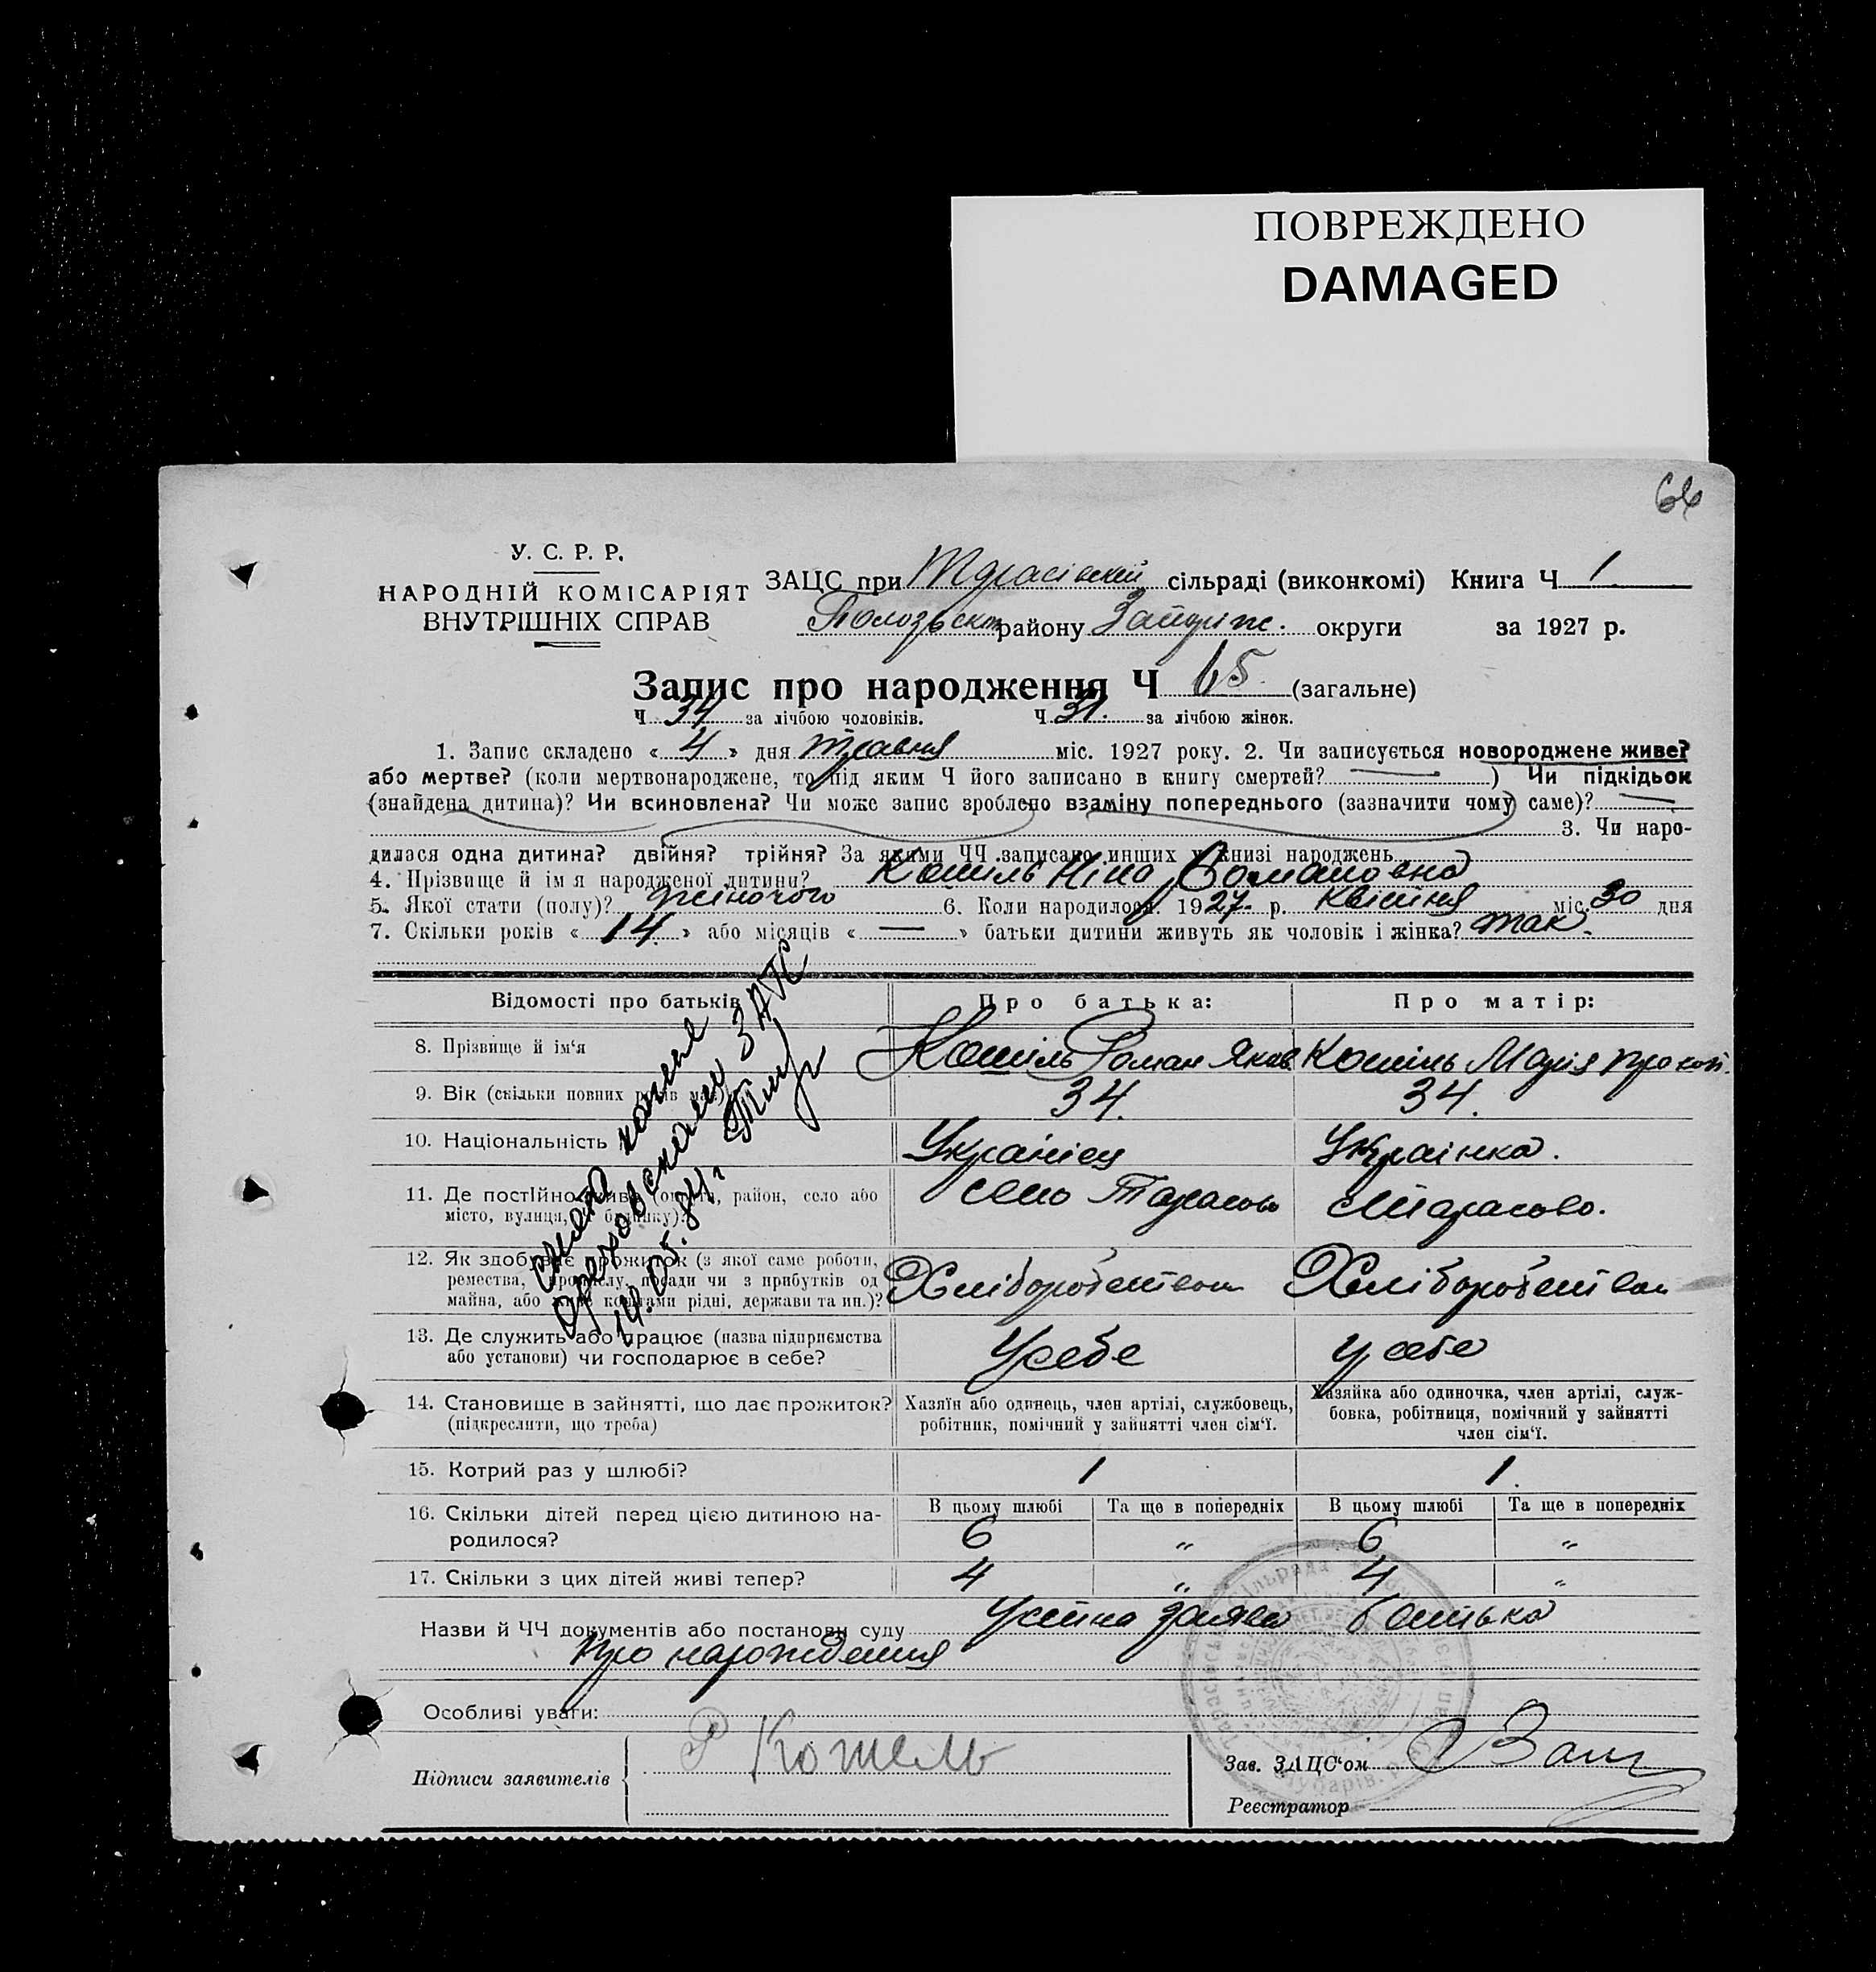 ПОВРЕЖДЕНО
DAMAGED
66
У. С. Р. Р.
НАРОДНІЙ КОМІСАРІЯТ
ВНУТРІШНІХ СПРАВ
ЗАЦС при Тарасівській сільраді (виконкомі) Книга Ч 1
Пологівськ району Запоріж. округи за 1927 р.
Запис про народження Ч 65 (загальне)
Ч 34 за лічбою чоловіків. Ч 31. за лічбою жінок.
1. Запис складено « 4 » дня травня міс. 1927 року. 2. Чи записується новороджене живе?
або мертве? (коли мертвонароджене, то під яким Ч його записано в книгу смертей? — ) Чи підкідьок
(знайдена дитина)? Чи всиновлена? Чи може запис зроблено взаміну попереднього (зазначити чому саме)? —
3. Чи наро-
дилася одна дитина? двійня? трійня? За якими ЧЧ записано инших у книзі народжень
4. Прізвище й ім я народженої дитини? Кошіль Ніна Романовна
5. Якої стати (полу)? жіночого 6. Коли народилося? 1927. р. Квітня міс. 30 дня
7. Скільки років « 14 » або місяців « — » батьки дитини живуть як чоловік і жінка? так.
Відомості про батьків Про батька: Про матір:
8. Прізвище й ім‘я Кошіль Роман Яков Кошіль Марія Прокоп.
9. Вік (скільки повних років має) 34. 34.
10. Національність Украінец Украінка.
11. Де постійно живе (округа, район, село або
місто, вулиця, ч будинку)? село Тарасово с Тарасово.
12. Як здобуває прожиток (з якої саме роботи,
ремества, промислу, посади чи з прибутків од
майна, або живе коштами рідні, держави та ин.)? Хліборобством Хліборобством
13. Де служить або працює (назва підприємства
або установи) чи господарює в себе? У себе у себе
14. Становище в зайнятті, що дає прожиток?
(підкреслити, що треба)
Хазяїн або одинець, член артілі, службовець,
робітник, помічний у зайнятті член сім‘ї.
Хазяйка або одиночка, член артілі, служ-
бовка, робітниця, помічний у зайнятті
член сім‘ї.
15. Котрий раз у шлюбі? 1 1.
В цьому шлюбі Та ще в попередніх В цьому шлюбі Та ще в попередніх
16. Скільки дітей перед цією дитиною на-
родилося? 6 „ 6 „
17. Скільки з цих дітей живі тепер? 4 „ 4 „
Назви й ЧЧ документів або постанови суду Устна заява батька
про нарождення
Особливі уваги:
Підписи заявителів Р Кошель
Зав. ЗАЦС‘ом
Реєстратор
Снята копия
Ореховским ЗАГС
14.05.84г.